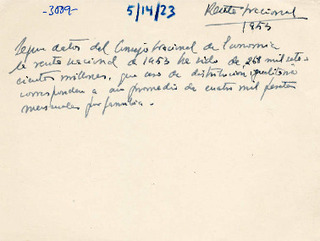 -3009-
5/14/23
Renta nacional
1953
Segun datos del Consejo nacional de Economia
la renta nacional de 1953 ha sido de 268 mil
cientos millones, que caso de distribucion
corresponden a un promedio de cuatro mil pesetas
mensuales por familia.